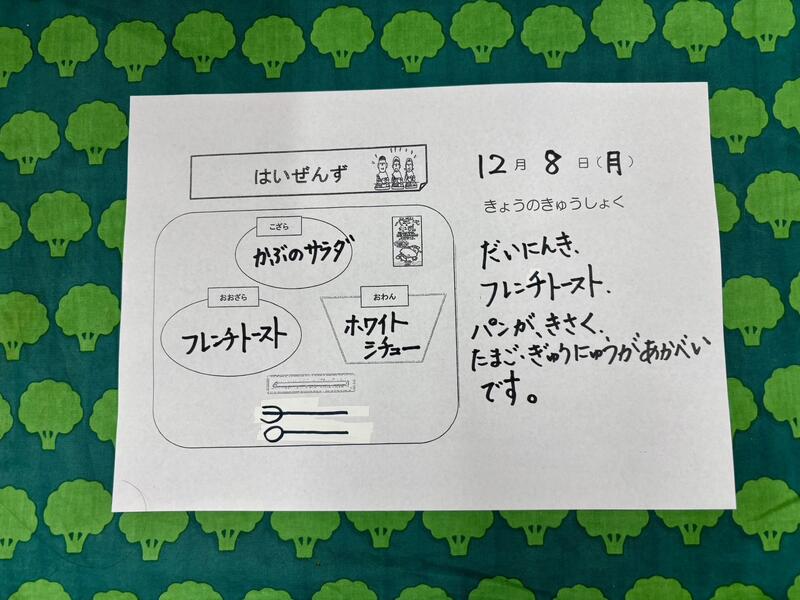 はいぜんず
こざら
かぶのサラダ
おおざら
フレンチトースト
おわん
ホワイト
シチュー
12月 8日(月)
きょうのきゅうしょく
だいにんき、
フレンチトースト.
パンが、きさく、
たまご、ぎゅうにゅうがあかべい
です。